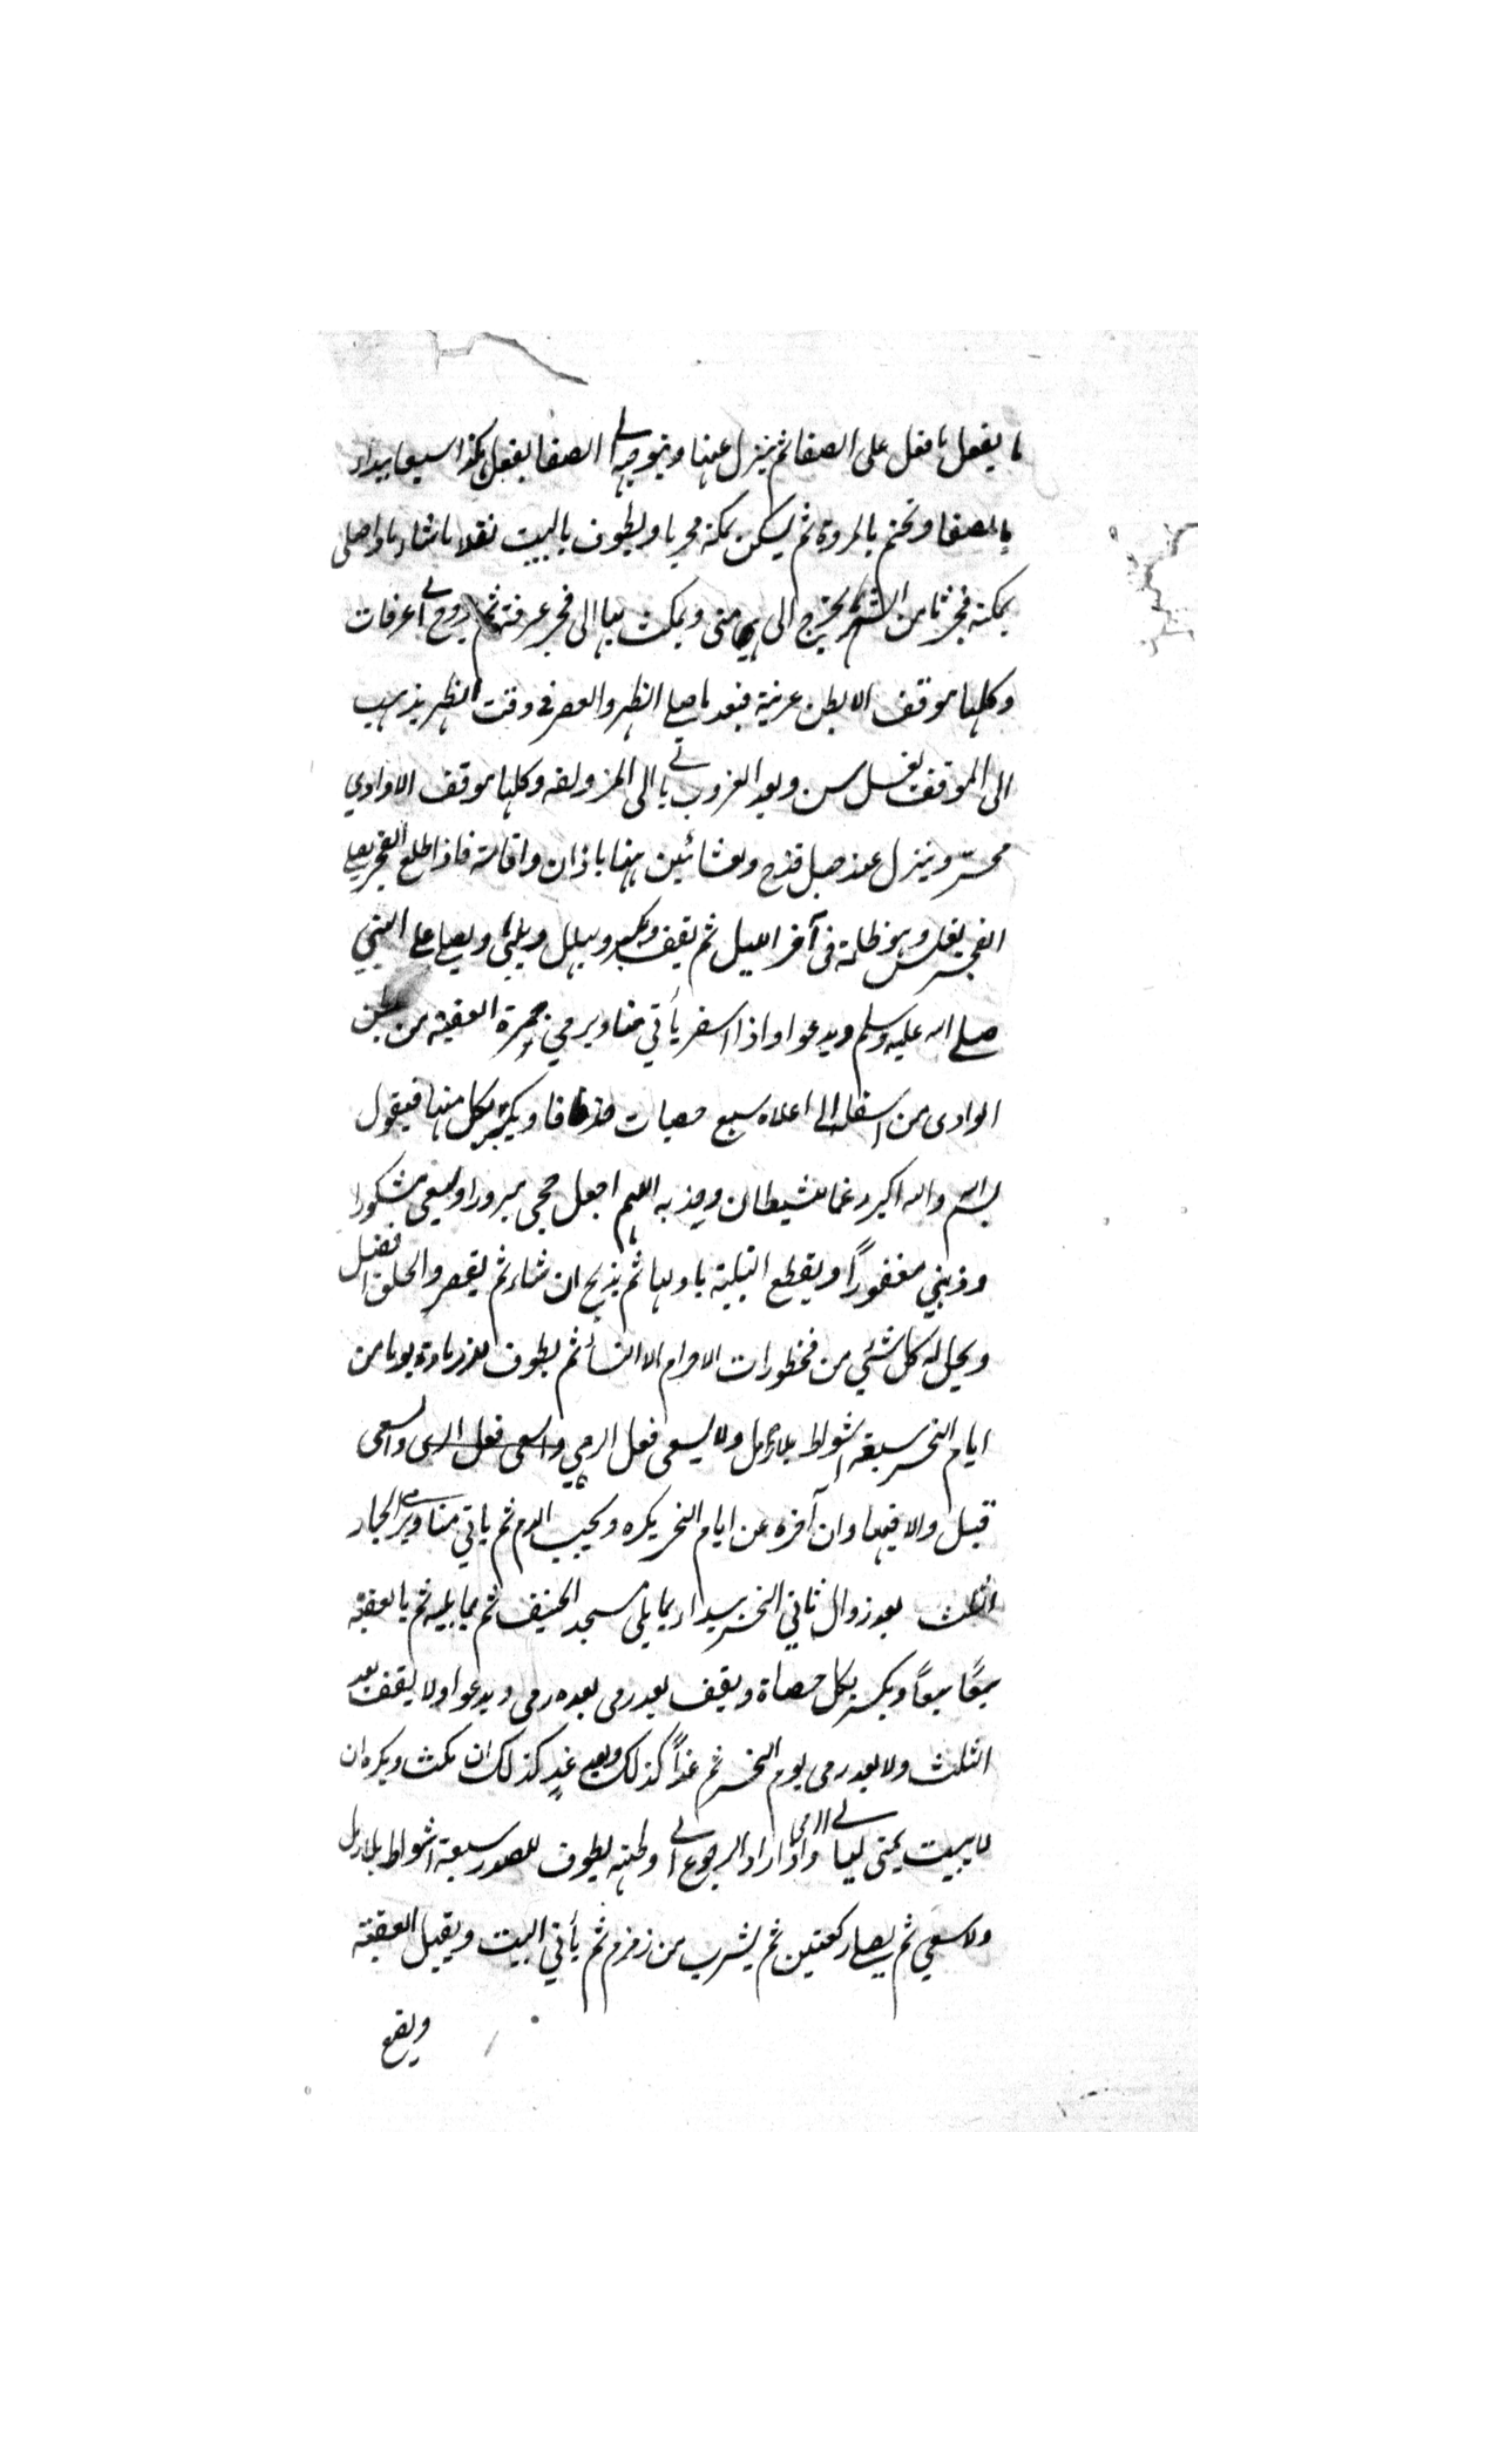 ما يفعل ما فعل على الصفا ثم ينزل عنها ويتوجه الى الصفا يفعل هكذا سبعا يبداء
بالصفا ويختم بالمروة ثم يسكن بمكة محرما ويطوف بالبيت نفلا ما شاء
بمكة فجر ثامن الشهر يخرج الى منى ويمكث بها الى فجر عرفة ثم يروح الى عرفات
وكلها موقف الا بطن عرنة فبعد ما صلى الظهر والعصر في وقت الظهر يذهب
الى الموقف بغسل سن وبعد الغروب ياتى الى المزدلفه وكلها موقف الا وادي
محسّر وينزل عند جبل قزح وعشائين ههنا باذان واقامة فاذا طلع الفجر يصلى
الفجر بغلس وهو ظلمة فى آخر الليل ثم يقف ويكبر ويهلل ويلبي ويصلى على النبي
صلى الله عليه وسلم ويدعوا واذا اسفر يأتي منا ويرمي جمرة العقبة من بطن
الوادى من اسفله الى اعلاه سبع حصيات خذفا ويكبر بكل منها فيقول
بسم الله والله اكبر رغما للشيطان وحزبه اللهم اجعل حجي مبرورا وسعيي مشكورا
وذنبي مغفوراً ويقطع التلبية باولها ثم يذبح ان شاء ثم يقصر والحلق افضل
ويحل له كل شئي من محظورات الاحرام الا النسأ ثم يطوف للزيادة يوما من
ايام النحر سبعة اشواط بلا رمل ولا يسعى فعل الرمي واسعى فعل الرمى والسعى
قبل والا فيهما وان آخره عن ايام النحر يكره ويجب الدم ثم ياتي منا ويرمى الجمار
الثلث بعد زوال ثاني النحر يبداء بما يلى مسجد الخيف ثم بما يليه ثم بالعقبة
سبعًا سبعًا ويكبر بكل حصاة ويقف بعد رمى بعده رمى ويدعوا ولا يقف بعد
الثلث ولا بعد رمى يوم النحر ثم غداً كذلك وبعد غدٍ كذلك ان مكث ويكره ان
لا يبيت بمنى ليالى الرمى واذا اراد الرجوع الى وطنه يطوف للصدر سبعة اشواط بلا رمل
ولا سعي ثم يصلى ركعتين ثم يشرب من زمزم ثم يأتي البيت ويقبل العقبة
ويضع